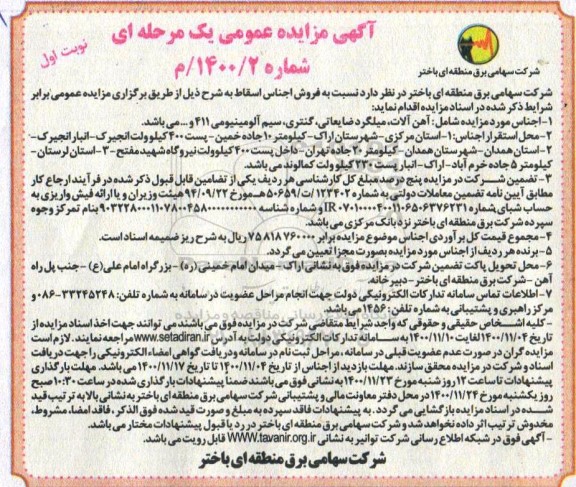 آگهی مزایده عمومی یک مرحله ای
شماره ۱۴۰۰/۲/م
نوبت اول
شرکت سهامی برق منطقه ای باختر
شرکت سهامی برق منطقه ای باختر در نظر دارد نسبت به فروش اجناس اسقاط به شرح ذیل از طریق برگزاری مزایده عمومی برابر
شرایط ذکر شده در اسناد مزایده اقدام نماید:
۱-اجناس مورد مزایده شامل: آهن آلات، میلگرد ضایعاتی، گنتری، سیم آلومینیومی ۴۱۱ و... می باشد.
۲-محل استقرار اجناس: ۱-استان مرکزی-شهرستان اراک-کیلومتر ۱۰ جاده خمین-پست ۴۰۰ کیلوولت انجیرک-انبار انجیرک-
۲-استان همدان-شهرستان همدان-کیلومتر ۲۰ جاده تهران-داخل پست ۴۰۰ کیلوولت نیروگاه شهید مفتح-۳-استان لرستان-
کیلومتر ۵ جاده خرم آباد-اراک-انبار پست ۲۳۰ کیلوولت کمالوند می باشد.
۳-تضمین شرکت در مزایده پنج درصد مبلغ کل کارشناسی هر ردیف یکی از تضامین قابل قبول ذکر شده در فرآیند ارجاع کار
مطابق آیین نامه تضمین معاملات دولتی به شماره ۱۲۳۴۰۲/ت۵۰۶۵۹هـ مورخ ۹۴/۰۹/۲۲ هیئت وزیران و یا ارائه فیش واریزی به
حساب شبای شماره IR
و شماره شناسه
بنام تمرکز وجوه
سپرده شرکت برق منطقه ای باختر نزد بانک مرکزی می باشد.
۴-مجموع قیمت کل برآوردی اجناس موضوع مزایده برابر ۷۵۸۱۸۷۶۰۰۰۰ ریال به شرح ریز ضمیمه اسناد است.
۵-برنده هر ردیف از اجناس مورد مزایده بصورت مجزا تعیین می گردد.
۶-محل تحویل پاکت تضمین شرکت در مزایده فوق به نشانی اراک-میدان امام خمینی (ره)-بزرگراه امام علی(ع)-جنب پل راه
آهن-شرکت برق منطقه ای باختر-دبیرخانه.
۷-اطلاعات تماس سامانه تدارکات الکترونیکی دولت جهت انجام مراحل عضویت در سامانه به شماره تلفن: ۳۳۲۴۵۲۴۸-۰۸۶ و
مرکز راهبری و پشتیبانی به شماره تلفن: ۱۴۵۶ می باشد.
-کلیه اشخاص حقیقی و حقوقی که واجد شرایط متقاضی شرکت در مزایده فوق می باشند می توانند جهت اخذ اسناد مزایده از
تاریخ ۱۴۰۰/۱۱/۰۴ لغایت ۱۴۰۰/۱۱/۱۰ به سامانه تدارکات الکترونیکی دولت به آدرس www.setadiran.ir مراجعه نمایند. لازم است
مزایده گران در صورت عدم عضویت قبلی در سامانه، مراحل ثبت نام در سامانه و دریافت گواهی امضاء الکترونیکی را جهت دریافت
اسناد و شرکت در مزایده محقق سازند. مهلت بازدید از اجناس از تاریخ ۱۴۰۰/۱۱/۰۴ تا تاریخ ۱۴۰۰/۱۱/۱۷ می باشد. مهلت بارگذاری
پیشنهادات تا ساعت ۱۲ روز شنبه مورخ ۱۴۰۰/۱۱/۲۳ به نشانی فوق می باشند ضمناً پیشنهادات بارگذاری شده در ساعت ۱۰:۳۰ صبح
روز یکشنبه مورخ ۱۴۰۰/۱۱/۲۴ در محل دفتر معاونت مالی و پشتیبانی شرکت سهامی برق منطقه ای باختر به نشانی بالا به ترتیب قید
شده در اسناد مزایده بازگشایی می گردد. به پیشنهادات فاقد سپرده به مبلغ و صورت قید شده فوق الذکر، فاقد امضا، مشروط،
مخدوش ترتیب اثر داده نخواهد شد و شرکت سهامی برق منطقه ای باختر در رد یا قبول پیشنهادات مختار می باشد.
-آگهی فوق در شبکه اطلاع رسانی شرکت توانیر به نشانی WWW.tavanir.org.ir قابل رویت می باشد.
شرکت سهامی برق منطقه ای باختر